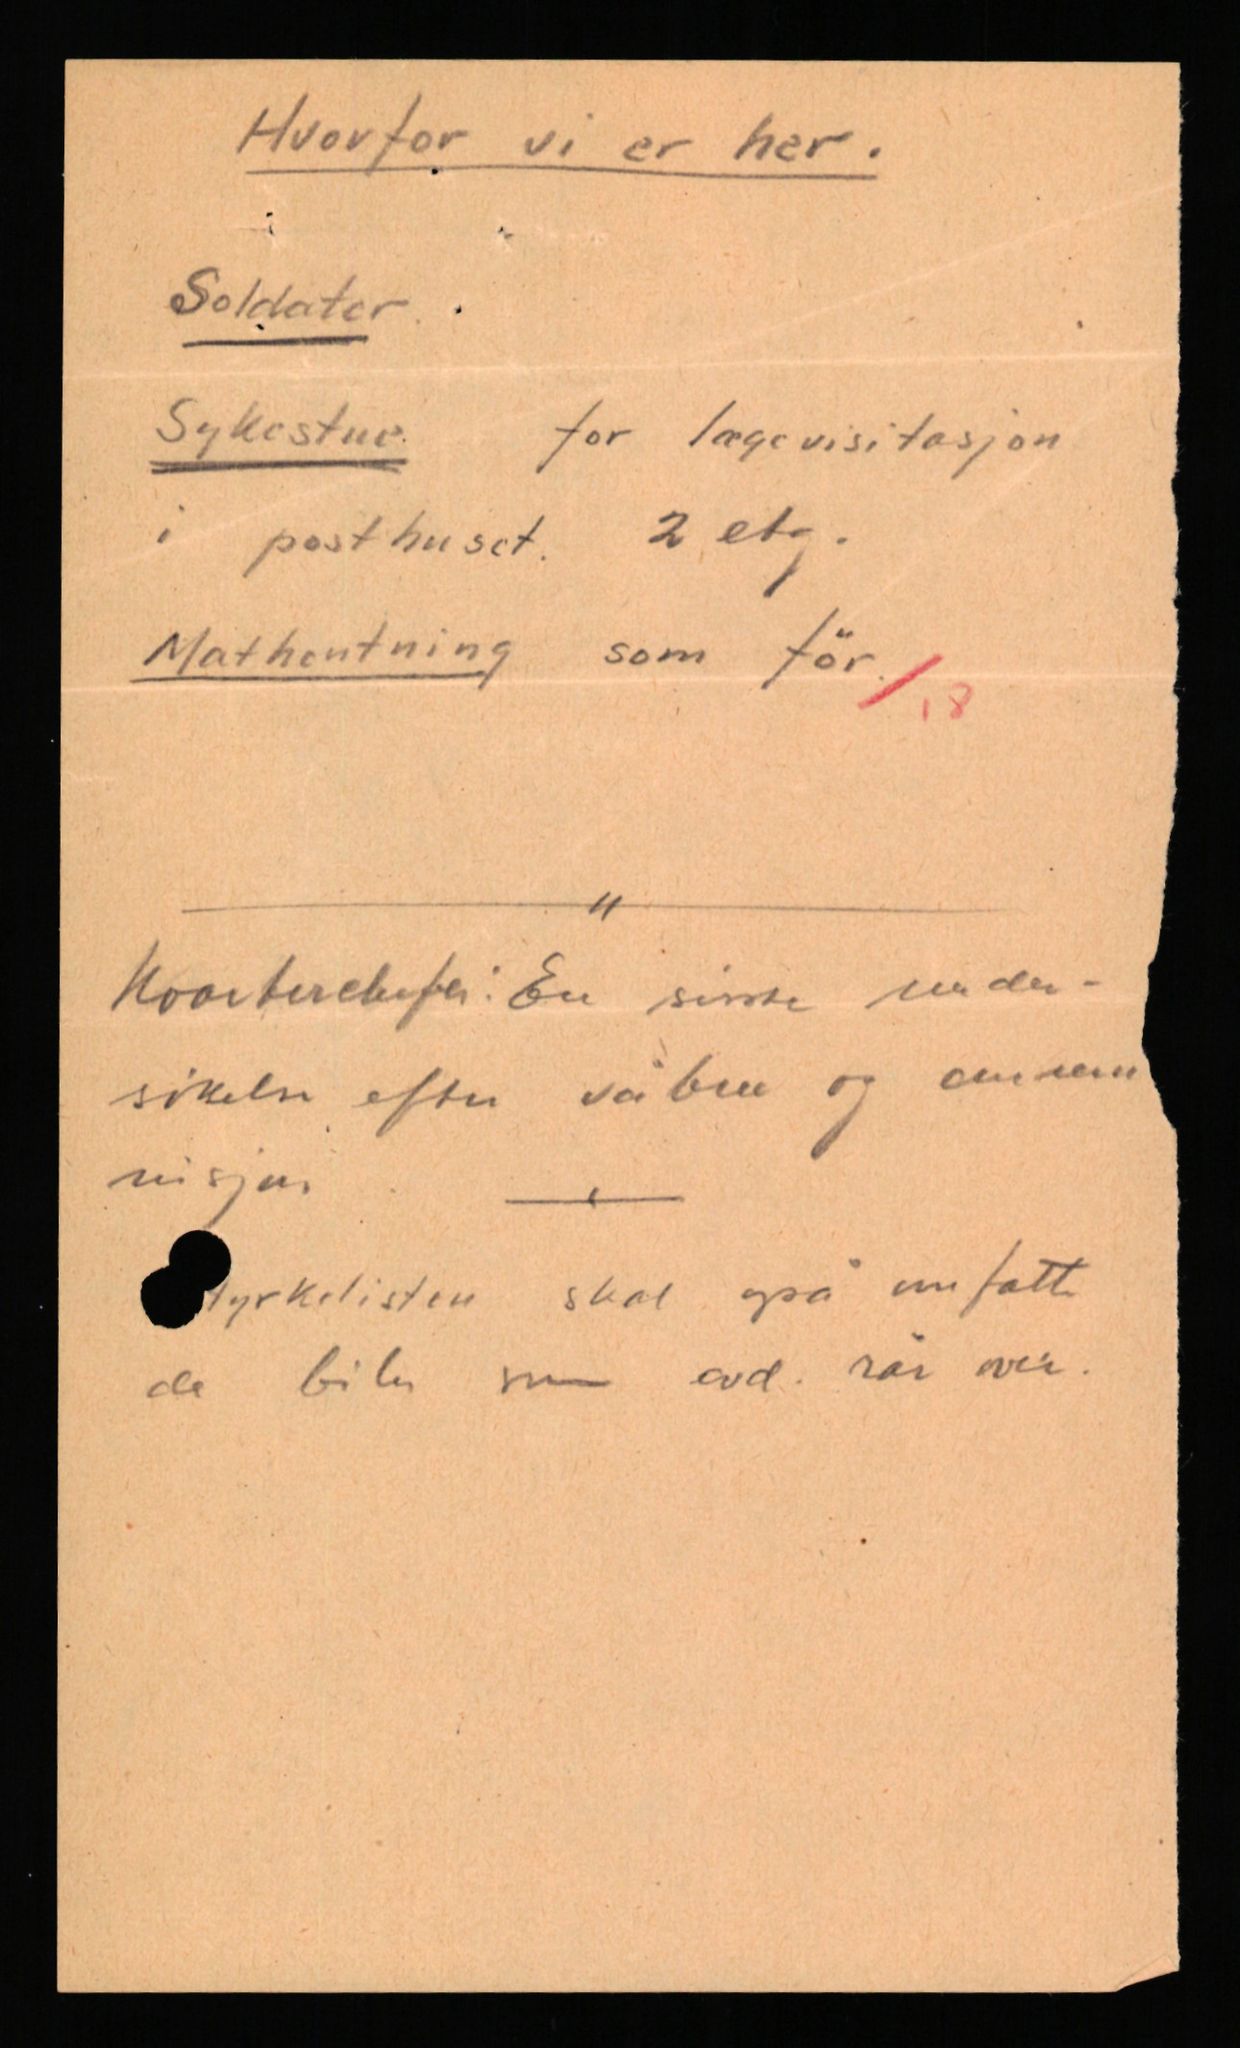 Hvorfor vi er her.
Soldater.
Sykestue. for lægevisitasjon
i posthuset. 2 etg.
Mathentning som før.
/18
En siste under-
søkelse efter våben og ammu
nisjon
tyrkelisten skal også omfatte
de biler som avd. rår over.